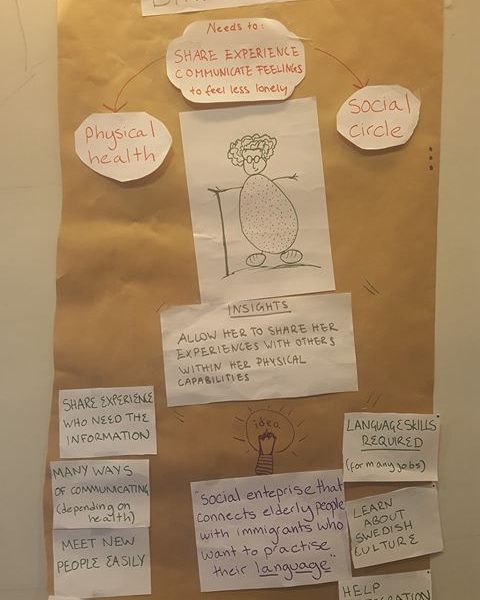 Needs to:
SHARE EXPERIENCE
COMMUNICATE FEELINGS
to feel less lonely
Physical
health
Social
circle
INSIGHTS
ALLOW HER TO SHARE HER
EXPERIENCES WITH OTHERS
WITHIN HER PHYSICAL
CAPABILITIES
idea
SHARE EXPERIENCE
WHO NEED THE
INFORMATION
MANY WAYS
OF COMMUNICATING
(depending on
health)
MEET NEW
PEOPLE EASILY
"Social enteprise that
connects elderly people
with immigrants who
want to practise
their language"
LANGUAGE SKILLS
REQUIRED
(for many jobs)
LEARN
ABOUT
SWEDISH
CULTURE
HELP